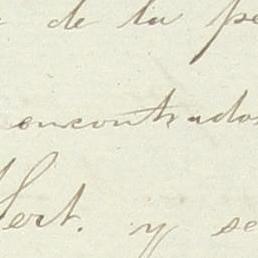 de la pe
encontrados
Sert. y se